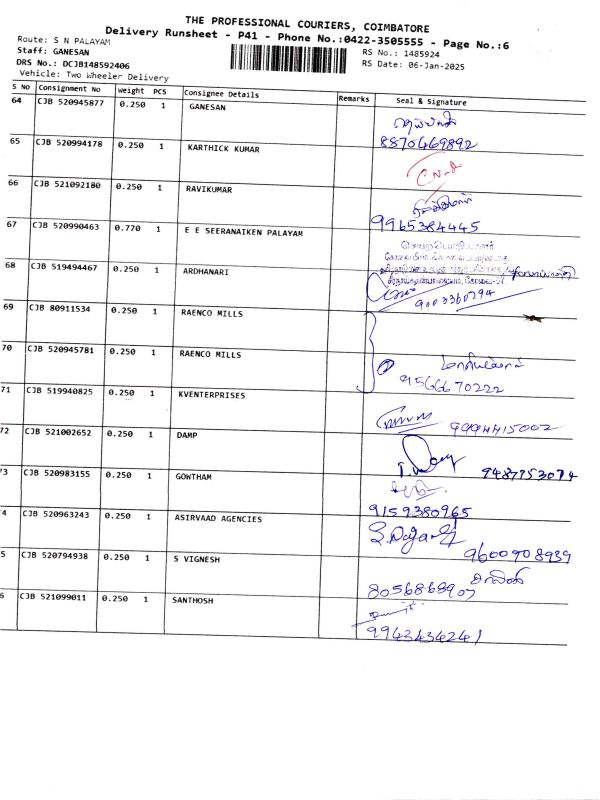 THE PROFESSIONAL COURIERS, COIMBATORE
Delivery Runsheet - P41 - Phone No.:0422-3505555 - Page No.:6
Route: S N PALAYAM
RS No.: 1485924
Staff: GANESAN
RS Date: 06-Jan-2025
DRS No.: DCJB148592406
Vehicle: Two Wheeler Delivery
S No Consignment No Weight PCS Consignee Details Remarks Seal & Signature
64 CJB 520945877 0.250 1 GANESAN
8870469892
65 CJB 520994178 0.250 1 KARTHICK KUMAR
66 CJB 521092180 0.250 1 RAVIKUMAR
9965384445
67 CJB 520990463 0.770 1 E E SEERANAIKEN PALAYAM
68 CJB 519494467 0.250 1 ARDHANARI
9003360294
69 CJB 80911534 0.250 1 RAENCO MILLS
70 CJB 520945781 0.250 1 RAENCO MILLS
9566670222
71 CJB 519940825 0.250 1 KVENTERPRISES
9994415002
72 CJB 521002652 0.250 1 DAMP
9487753074
73 CJB 520983155 0.250 1 GOWTHAM
9159380965
4 CJB 520963243 0.250 1 ASIRVAAD AGENCIES
9600908939
5 CJB 520794938 0.250 1 S VIGNESH
8056868907
6 CJB 521099011 0.250 1 SANTHOSH
9943434241